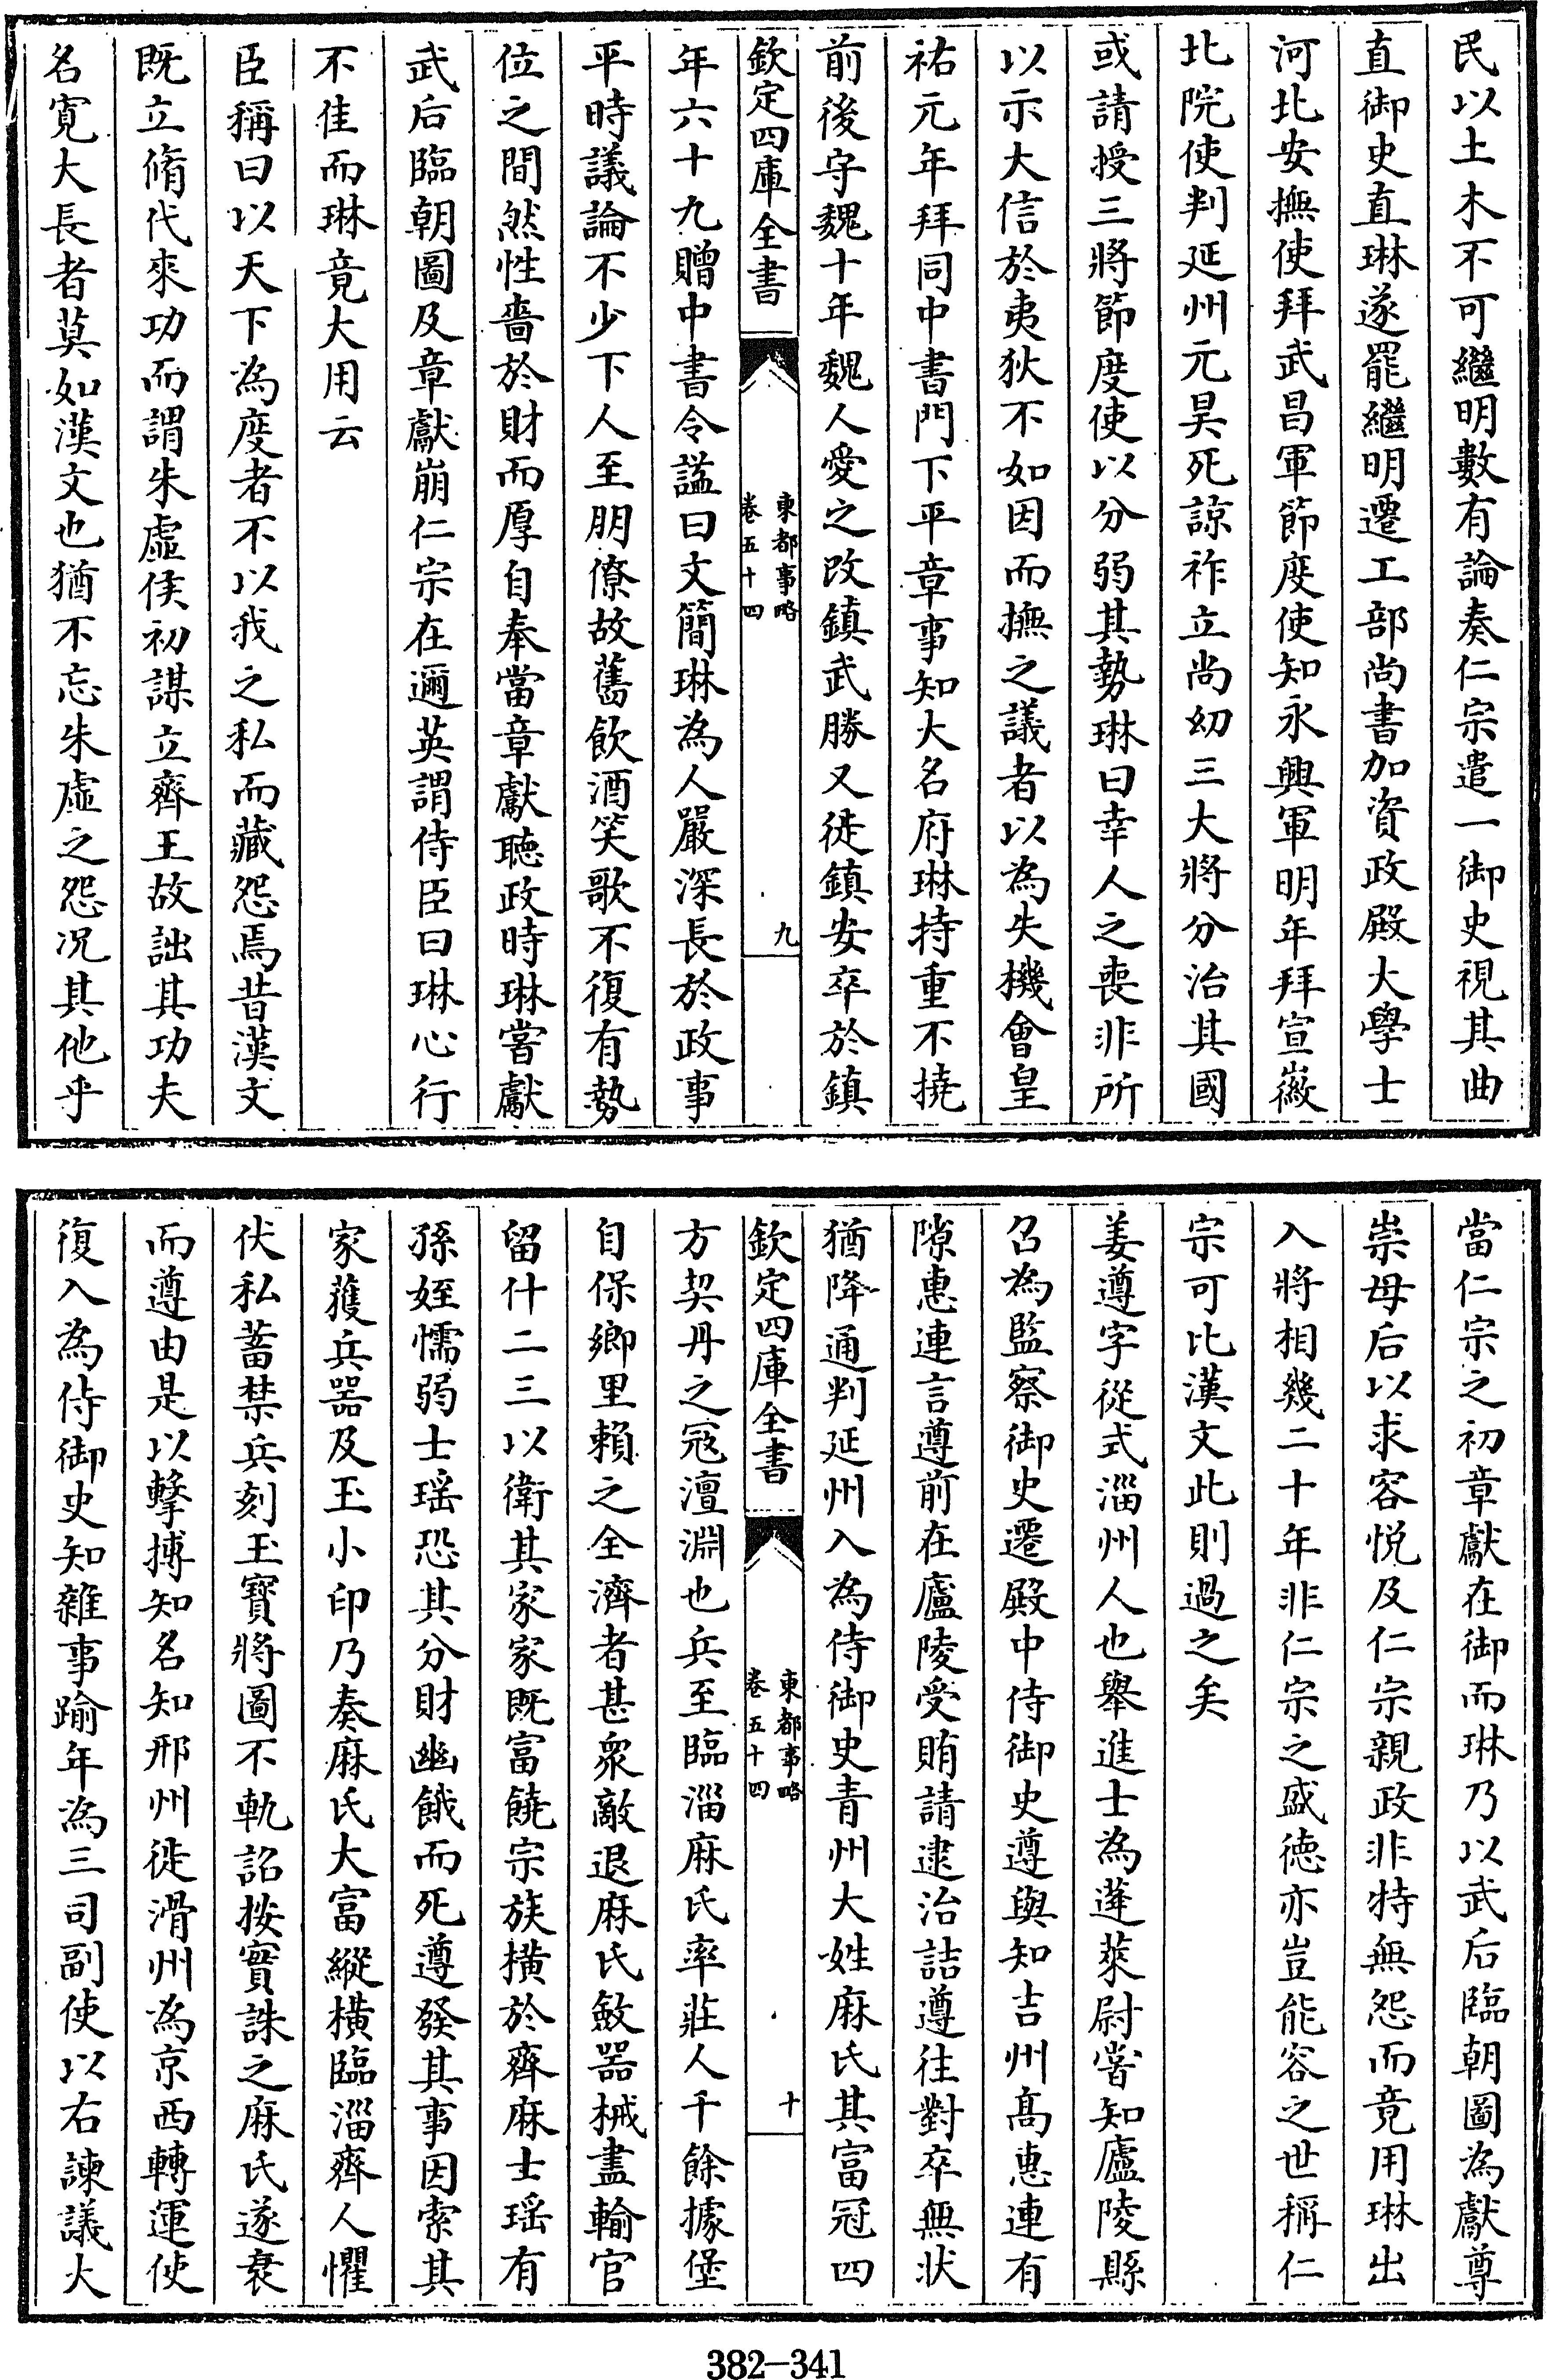 民以土木不可繼明數有論奏仁宗遣一御史視其曲
直御史直琳遂罷繼明遷工部尚書加資政殿大學士
河北安撫使拜武昌軍節度使知永興軍明年拜宣徽
北院使判延州元昊死諒祚立尚幼三大將分治其國
或請授三將節度使以分弱其勢琳曰幸人之喪非所
以示大信於夷狄不如因而撫之議者以為失機會皇
祐元年拜同中書門下平章事知大名府琳持重不撓
前後守魏十年魏人愛之改鎮武勝又徙鎮安卒於鎮
欽定四庫全書
東都事略
卷五十四
九
年六十九贈中書令諡曰文簡琳為人嚴深長於政事
平時議論不少下人至朋僚故舊飲酒笑歌不復有勢
位之間然性嗇於財而厚自奉當章獻聽政時琳嘗獻
武后臨朝圖及章獻崩仁宗在邇英謂侍臣曰琳心行
不佳而琳竟大用云
臣稱曰以天下為度者不以我之私而藏怨焉昔漢文
既立脩代來功而謂朱虛侯初謀立齊王故詘其功夫
名寛大長者莫如漢文也猶不忘朱虛之怨况其他乎
當仁宗之初章獻在御而琳乃以武后臨朝圖為獻尊
崇母后以求容悅及仁宗親政非特無怨而竟用琳出
入將相幾二十年非仁宗之盛徳亦豈能容之世稱仁
宗可比漢文此則過之矣
姜遵字從式淄州人也舉進士為蓬萊尉嘗知廬陵縣
召為監察御史遷殿中侍御史遵與知吉州高惠連有
隙惠連言遵前在廬陵受賄請逮治詰遵往對卒無狀
猶降通判延州入為侍御史青州大姓麻氏其富冠四
欽定四庫全書
東都事略
卷五十四
十
方契丹之冦澶淵也兵至臨淄麻氏率莊人千餘據堡
自保鄉里賴之全濟者甚衆敵退麻氏斂器械盡輸官
留什二三以衛其家家既富饒宗族橫於齊麻士瑶有
孫姪懦弱士瑶恐其分財幽餓而死遵發其事因索其
家蒦兵噐及玉小印乃奏麻氏大富縱橫臨淄齊人懼
伏私蓄禁兵刻玉寳將圖不軌詔按實誅之麻氏遂衰
而遵由是以擊搏知名知邢州徙滑州為京西轉運使
復入為侍御史知雜事踰年為三司副使以右諫議大
382-341